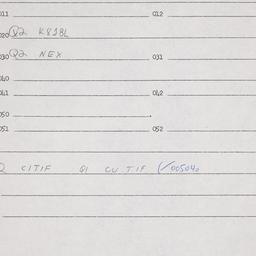 011 012
020 Q2 K818L
030 Q2 NEX 031
040
041 042
050
051 052
Q CITIF Q1 CU TIF (/005040